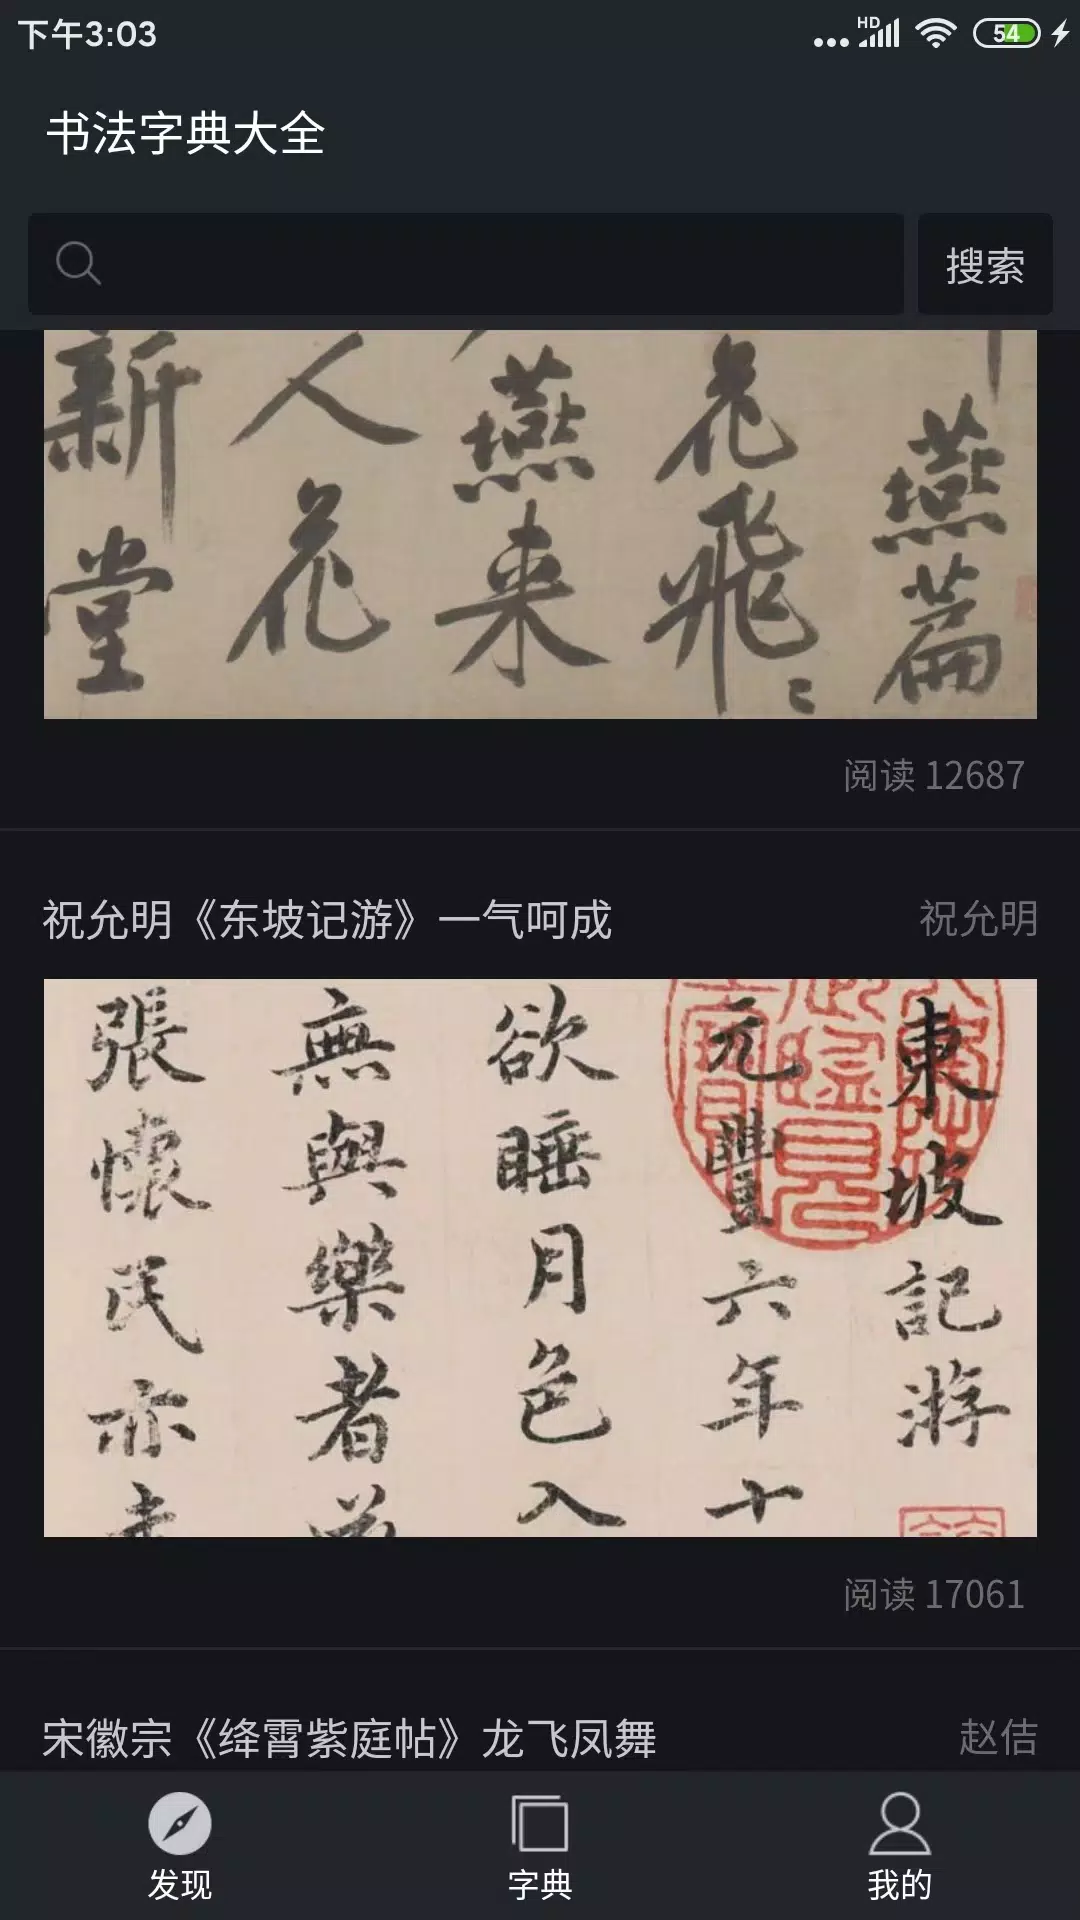 下午3:03
HD
54
书法字典大全
搜索
燕篇
花飛〻
燕来
人花
新堂
阅读 12687
祝允明《东坡记游》一气呵成
祝允明
東坡記游
元豐六年十
欲睡月色入
無與樂者
張懷民亦
阅读 17061
宋徽宗《绛霄紫庭帖》龙飞凤舞
赵佶
发现
字典
我的